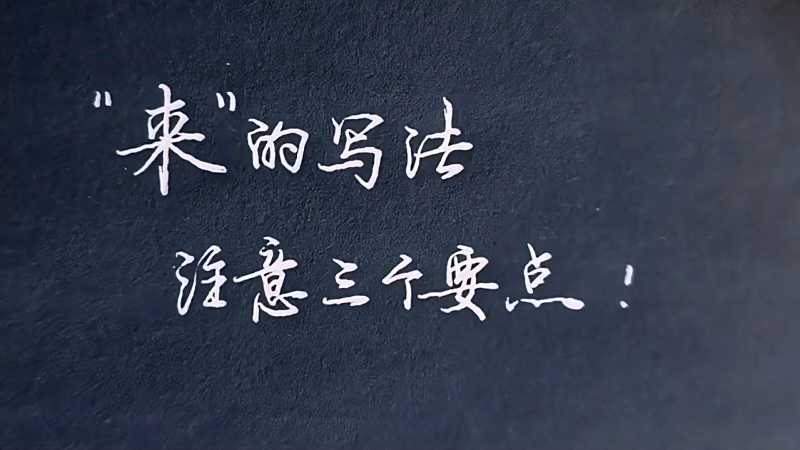 “来”的写法
注意三个要点！